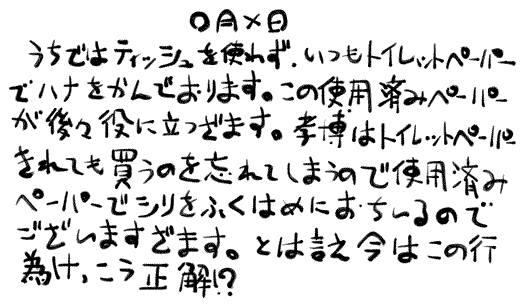 ○月×日
うちではティッシュを使わず、いつもトイレットペーパー
でハナをかんでおります。この使用済みペーパー
が後々役に立つざます。孝博はトイレットペーパー
きれても買うのを忘れてしまうので使用済み
ペーパーでシリをふくはめにおちいるので
ございますざます。とは言え今はこの行
為け、こう正解!?